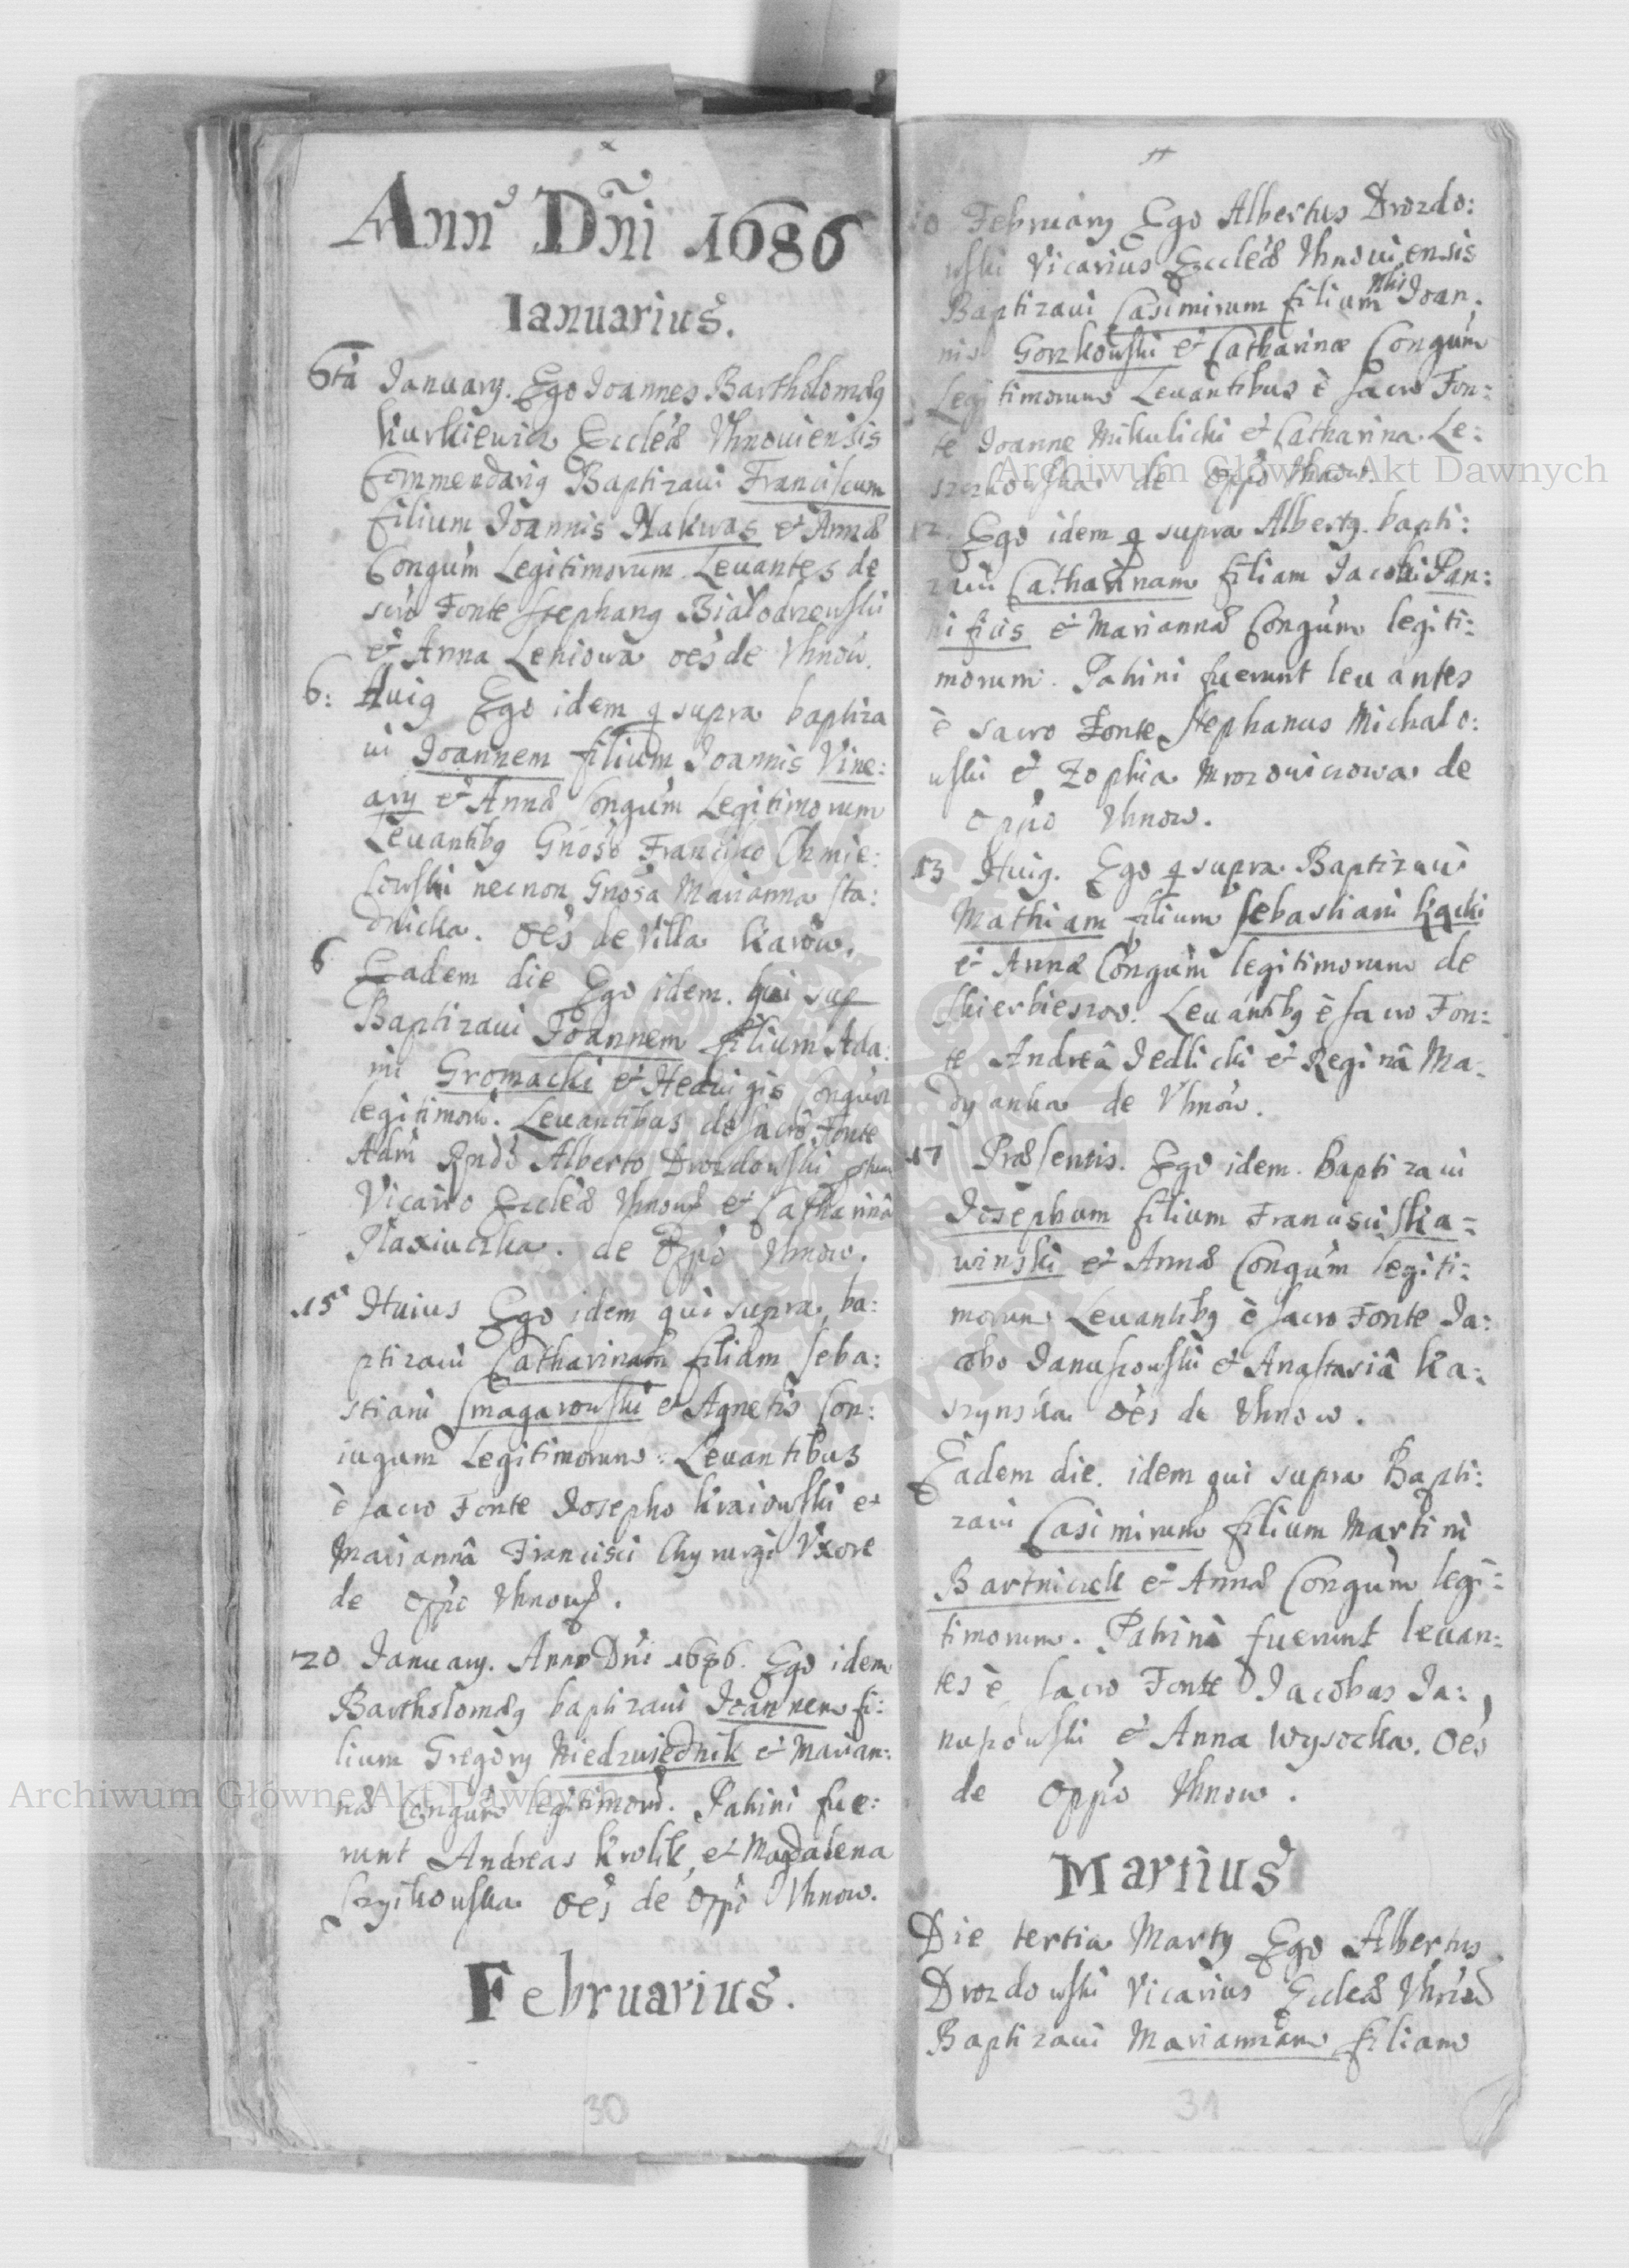 Ann⁹ Dñi 1686
Ianuarius.
6ta January. Ego Joannes Bartholomæ⁹
Kurkiewicz Ecclæ Vhnouiensis
Commendari⁹ Baptizaui Franciscum
filium Joannis Nakwas et Annæ
Congũm Legitimorum. Leuantes de
Fonte Stephan⁹
et Anna Leniowa oẽs de Vhnow.
6: Hui⁹ Ego idem q supra baptiza
ui Joannem filium Joannis Vine:
ary et Annæ Congũm Legitimorum
Leuantib⁹ Gñoso Francisco Chmie:
lowski necnon Gñosa Marianna Sta:
dnicka. oẽs de Villa Karow.
6 Eadem die Ego idem. qui sup
Baptizaui Joannem filium Ada:
mi Gromacki et Heduigis Congũm
legitimorũ. Leuantibus de sacro Fonte
Adm Rndo Alberto Drozdowski
Vicario Ecclæ Vhnouiẽ et Catharinâ
de Oppo Vhnow.
15 Huius Ego idem qui supra ba:
ptizaui Catharinam filiam Seba:
stiani Smagarowski et Agnetis Con:
iugum Legitimorum: Leuantibus
è sacro Fonte Josepho Kraiowski et
Mariannâ Francisci Chyrurgi Vxore
de oppo Vhnouiẽ.
20 January. Anno Dñi 1686. Ego idem
Bartholomæ⁹ baptizaui Joannem fi:
lium Gregory Niedzwiednik et Marian:
næ Congũm legitimorũ. Patrini fue:
runt Andreas Krolik et Magdalena
Szyikowska oẽs de oppo Vhnow.
Februarius.
30
10 February Ego Albertus Drozdo:
wski Vicarius Ecclæ Vhnouiensis
Baptizaui Casimirum filium Nbis Joan:
nis Gorzkowski et Catharinæ Congũm
Legitimorum Leuantibus è sacro Fon:
te Joanne Mikulicki et Catharina Le:
szczkowska de oppo Vhnow.
12. Ego idem q supra Albert⁹ bapti:
zaui Catharinam filiam Jacobi Pan:
nificis et Mariannæ Congũm legiti:
morum. Patrini fuerunt leuantes
è sacro Fonte Stephanus Michalo:
wski et Zophia Mrozowicowa de
oppo Vhnow.
13 Hui⁹. Ego q supra Baptizaui
Mathiam filium Sebastiani Kącki
et Annæ Congũm legitimorum de
Skierbieszow. Leuantib⁹ è sacro Fon:
te Andreâ Jedlicki et Reginâ Ma:
dyanka de Vhnow.
17 Præsentis. Ego idem baptizaui
Josephum filium Francisci Ska=
winski et Annæ Congũm legiti:
morum Leuantib⁹ è sacro Fonte Ja:
cobo Januszowski et Anastasiâ Ka:
szynska oẽs de Vhnow.
Eadem die. idem qui supra Bapti:
zaui Casimirum filium Martini
Bartniczek et Annæ Congũm legi=
timorum. Patrini fuerunt leuan:
tes è sacro Fonte Jacobus Ja:
nuszowski et Anna Wysocka. Oẽs
de oppo Vhnow.
Martius
Die tertia Marty Ego Albertus
Drozdowski Vicarius Ecclæ
Baptizaui Mariannam filiam
31
Archiwum Główne Akt Dawnych
Archiwum Główne Akt Dawnych